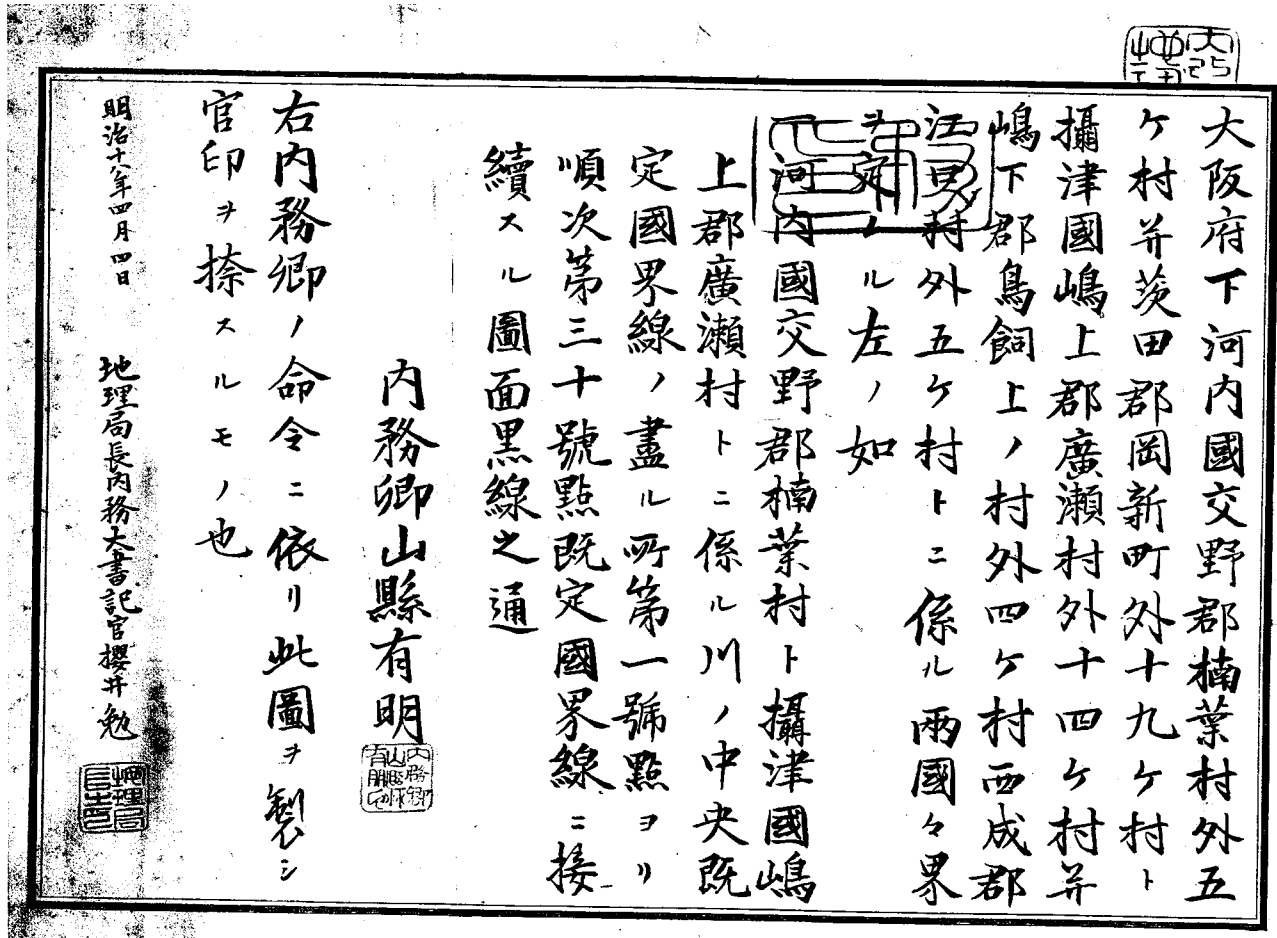 大阪府下河内國交野郡楠葉村外五
ケ村并茨田郡岡新町外十九ケ村ト
攝津國嶋上郡廣瀬村外十四ケ村并
嶋下郡鳥飼上ノ村外四ケ村西成郡
江口村外五ケ村トニ係ル兩國々界
ヲ定ムル左ノ如
一河内國交野郡楠葉村ト攝津國嶋
上郡廣瀬村トニ係ル川ノ中央既
定國界線ノ盡ル所第一號點ヨリ
順次第三十號點既定國界線ニ接
續スル圖面黒線之通
内務卿山縣有明
内務卿山縣有朋印
右内務卿ノ命令ニ依リ此圖ヲ製シ
官印ヲ捺スルモノ也
明治十八年四月四日
地理局長内務大書記官櫻井勉
地理局長之印